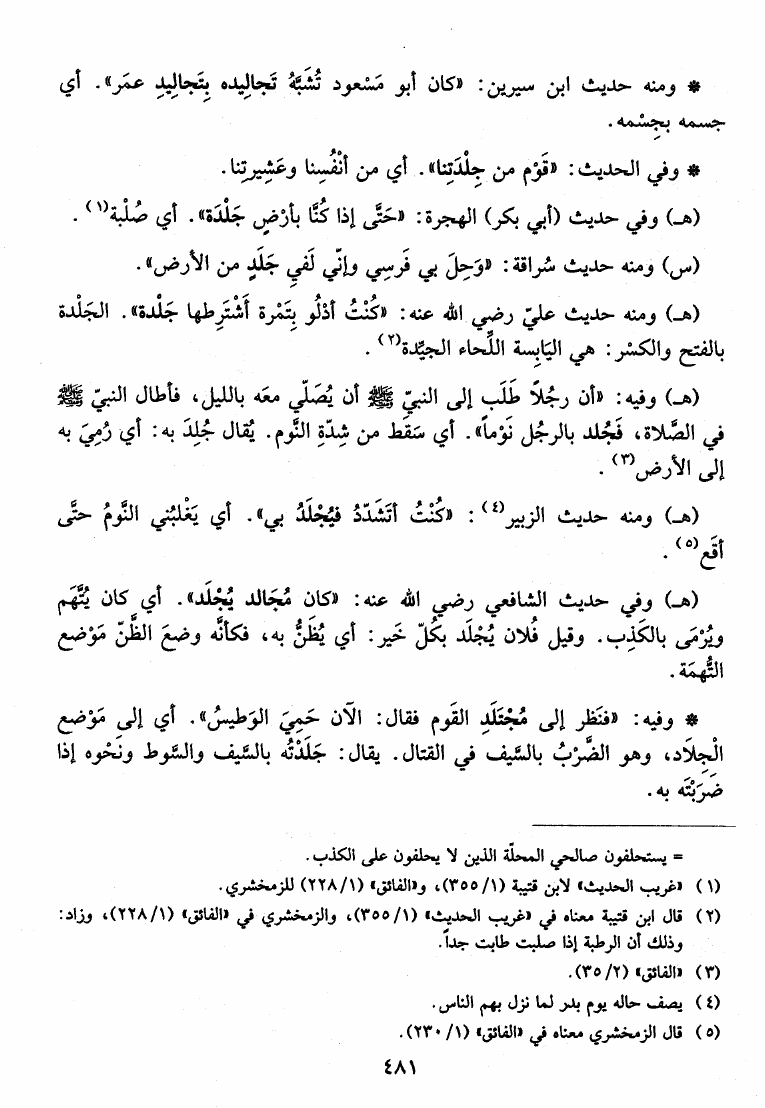 * ومنه حديث ابن سيرين: «كان أبو مَسْعود تُشَبَّهُ تَجالِيده بِتَجالِيدِ عمَر». أي
جسمه بجِسْمه.
* وفي الحديث: «قَوْم من جِلْدَتِنا». أي من أنْفُسِنا وعَشِيرتِنا.
(هـ) وفي حديث (أبي بكر) الهجرة: «حَتَّى إذا كُنَّا بأرْضٍ جَلْدَة». أي صُلْبة(١).
(س) ومنه حديث سُراقة: «وَحِلَ بي فَرسِي وإنّي لَفي جَلَدٍ من الأرض».
(هـ) ومنه حديث عليّ رضي الله عنه: «كُنْتُ أدْلُو بِتَمْرة أشْتَرِطها جَلْدة». الجَلْدة
بالفتح والكسْر: هي اليَابِسة اللِّحاء الجيِّدة(٢).
(هـ) وفيه: «أن رجُلاً طَلَب إلى النبيّ ﷺ أن يُصَلّي معَه بالليل، فأطال النبيّ ﷺ
في الصَّلاة، فَجُلد بالرجُل نَوْماً». أي سَقَط من شِدّةِ النَّوم. يُقال جُلِدَ به: أي رُمِيَ به
إلى الأرض(٣).
(هـ) ومنه حديث الزبير(٤): «كُنْتُ أتَشَدّدُ فيُجْلَدُ بي». أي يَغْلبُني النَّومُ حتَّى
أقَع(٥).
(هـ) وفي حديث الشافعي رضي الله عنه: «كان مُجَالد يُجْلَد». أي كان يُتَّهَم
ويُرْمَى بالكَذِب. وقيل فُلان يُجْلَد بكُلّ خَير: أي يُظَنُّ به، فكأنَّه وضعَ الظَّنّ مَوْضع
التُّهمَة.
* وفيه: «فنَظر إلى مُجْتَلَدِ القَوم فقال: الآن حَمِيَ الوَطيسُ». أي إلى مَوْضع
الْجِلَاد، وهو الضَّرْبُ بالسَّيف في القتال. يقال: جَلَدْتُه بالسَّيف والسَّوط ونَحْوه إذا
ضَرَبْتَه به.
= يستحلفون صالحي المحلّة الذين لا يحلفون على الكذب.
(١) «غريب الحديث» لابن قتيبة (١/ ٣٥٥)، و«الفائق» (١/ ٢٢٨) للزمخشري.
(٢) قال ابن قتيبة معناه في «غريب الحديث» (١/ ٣٥٥)، والزمخشري في «الفائق» (١/ ٢٢٨)، وزاد:
وذلك أن الرطبة إذا صلبت طابت جداً.
(٣) «الفائق» (٢/ ٣٥).
(٤) يصف حاله يوم بدر لما نزل بهم الناس.
(٥) قال الزمخشري معناه في «الفائق» (١/ ٢٣٠).
٤٨١